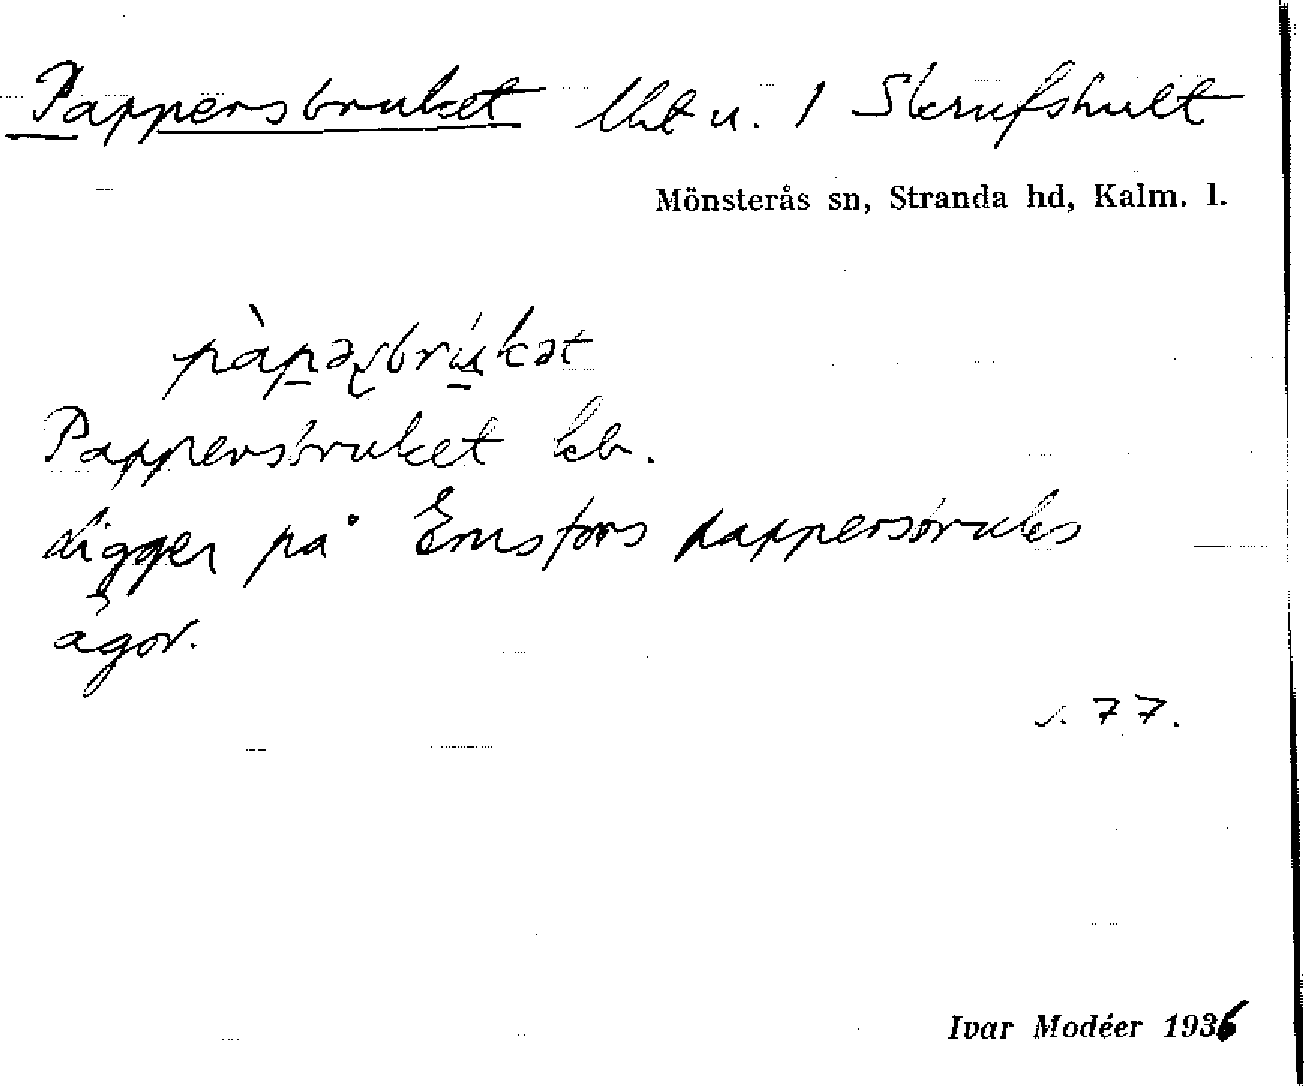 Pappersbruket lht u. 1 Skrufshult
Mönsterås sn, Stranda hd, Kalm. l.
pàpəʂbrúkət
Pappersbruket kb.
Ligger på Emsfors pappersbruks
ägor.
s. 77.
Ivar Modéer 1936